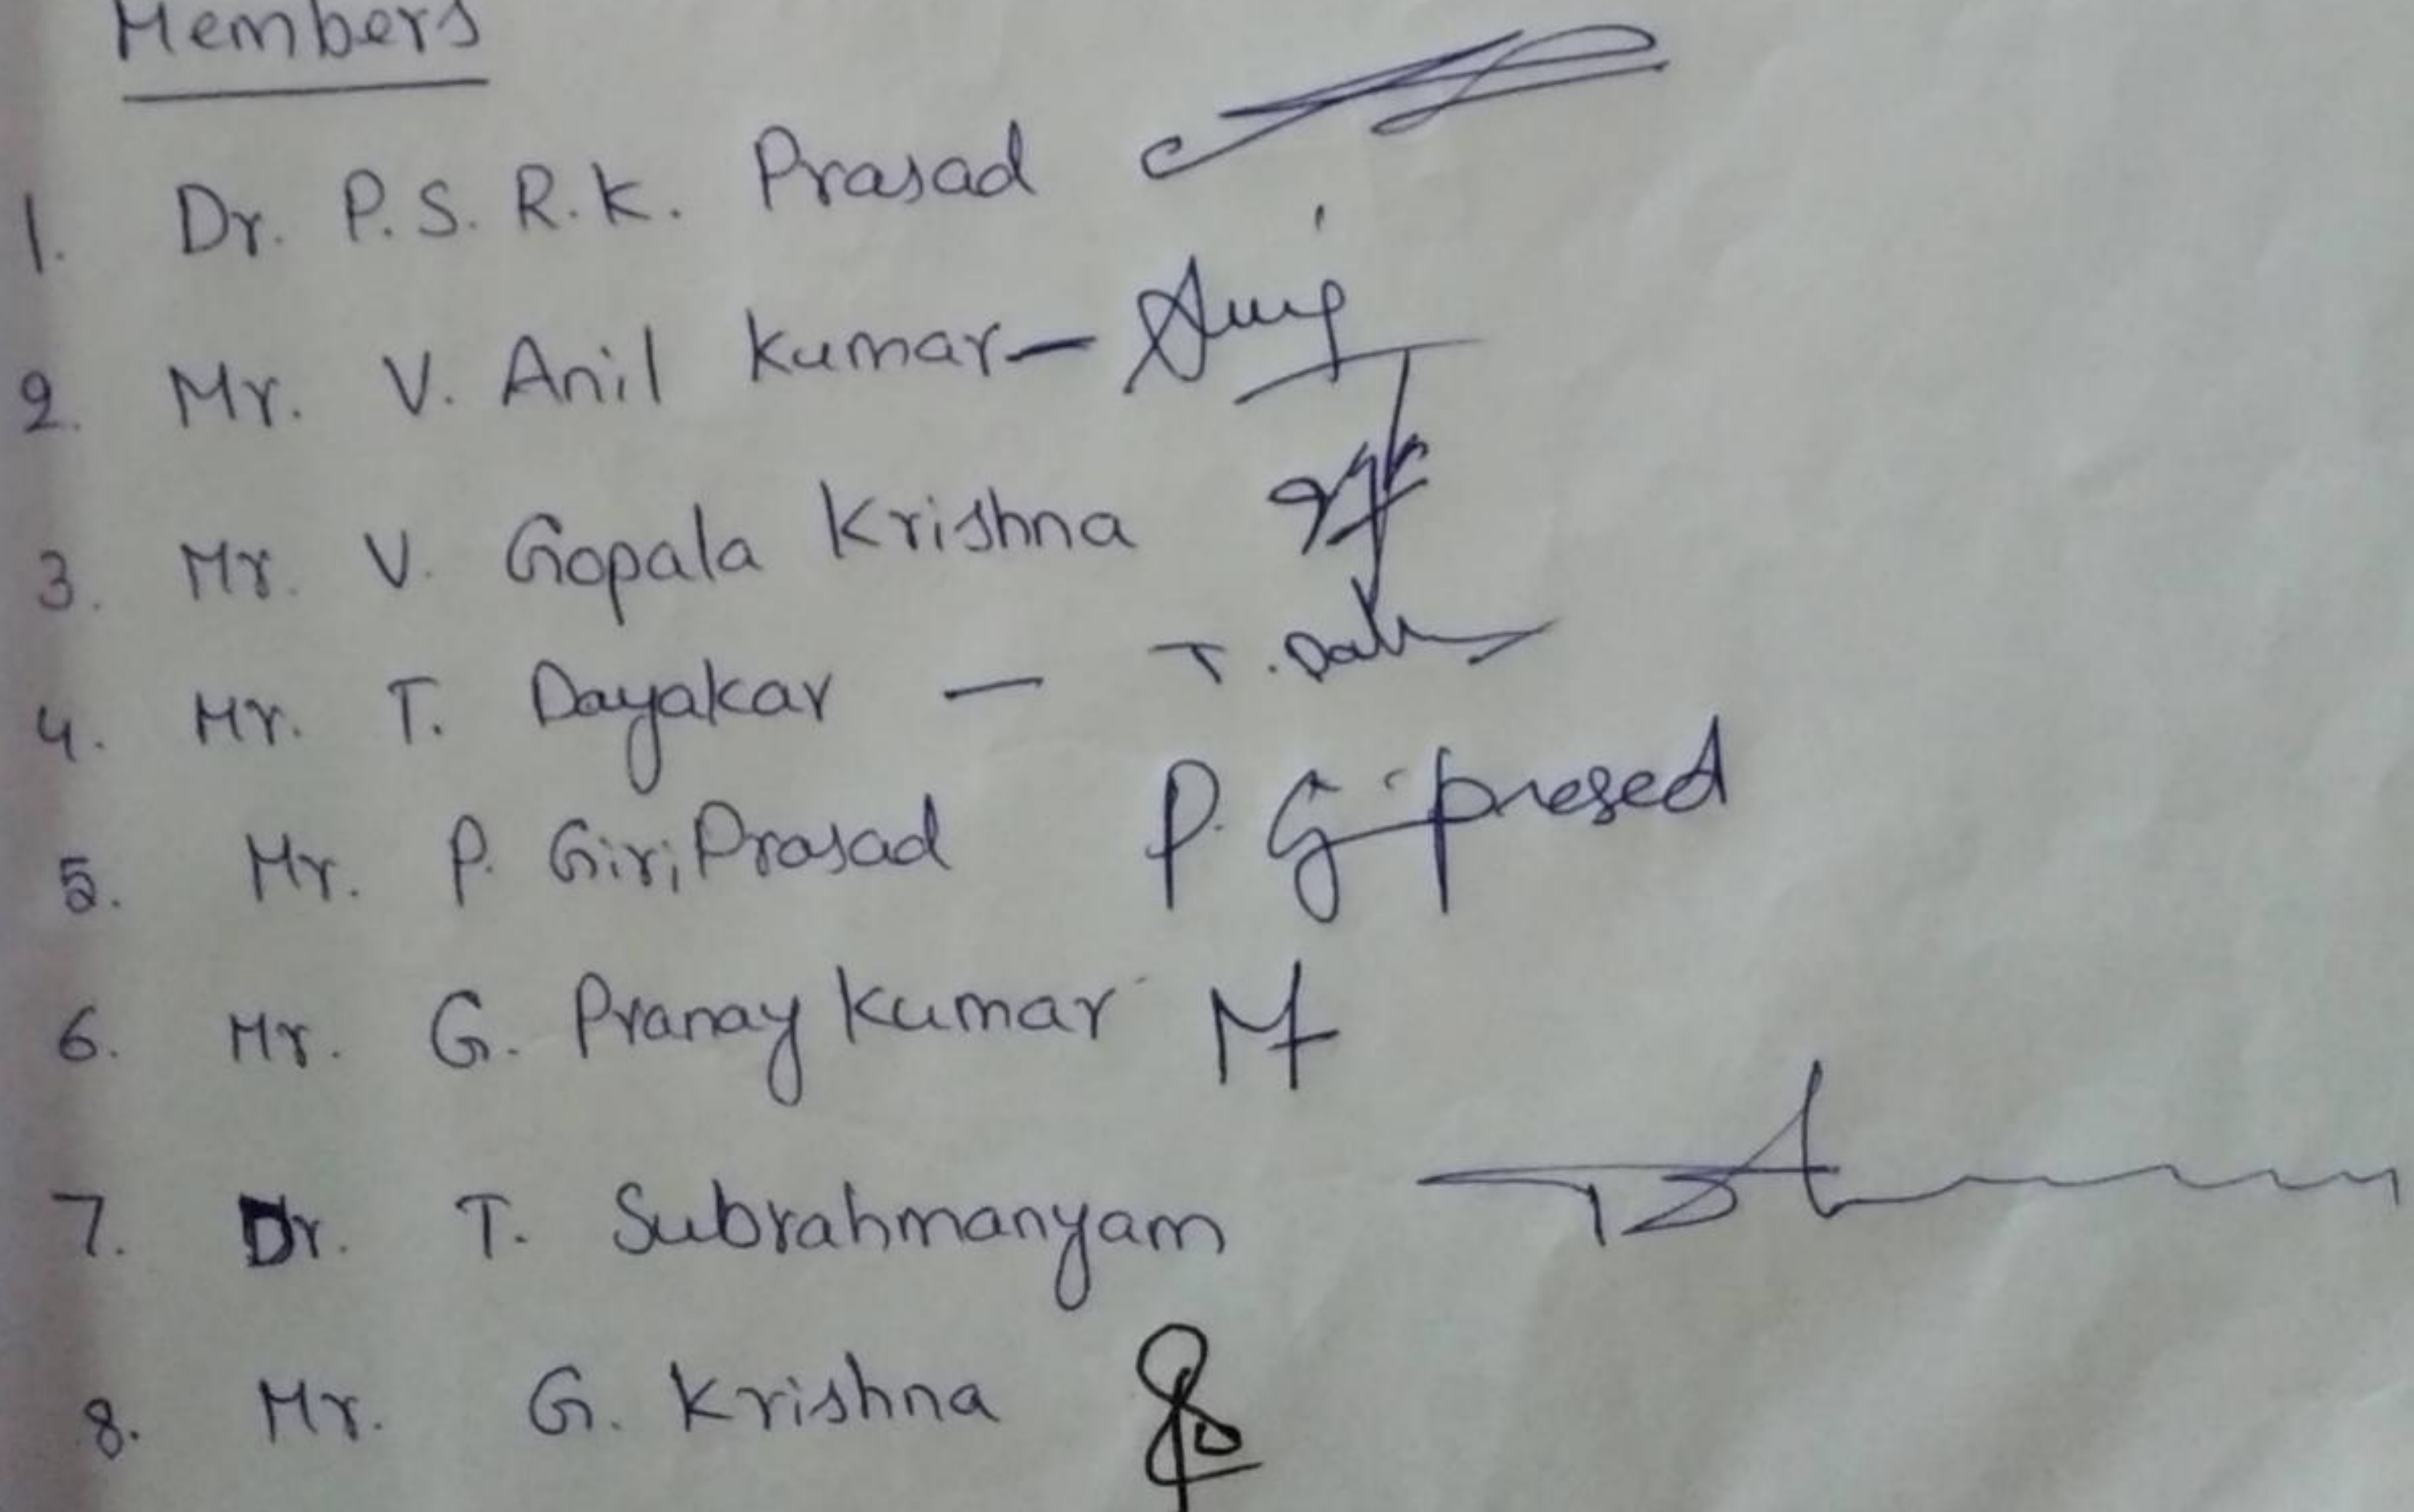 Members
1. Dr. P.S.R.K. Prasad
2. Mr. V. Anil Kumar-
3. Mr. V. Gopala Krishna
4. Mr. T. Dayakar -
5. Mr. P. GiriPrasad P. G prased
6. Mr. G. Pranay Kumar
7. Dr. T. Subrahmanyam
8. Mr. G. Krishna